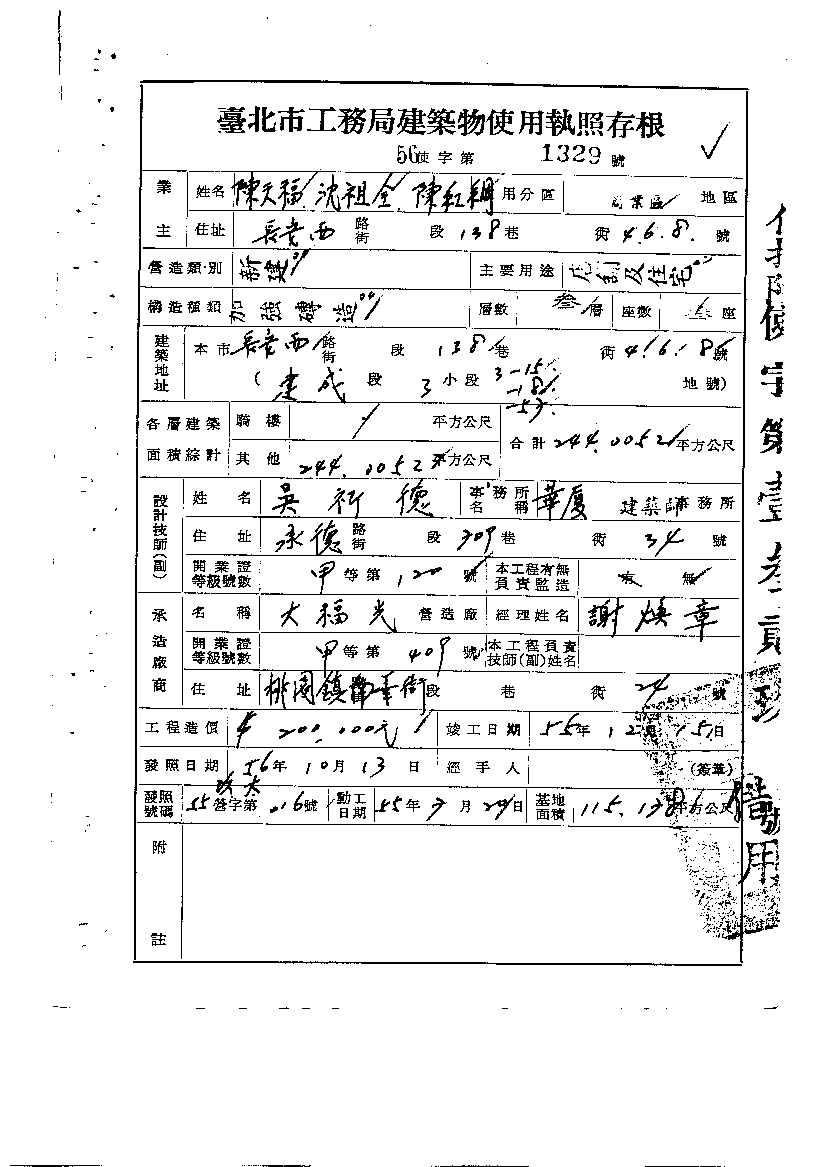 臺北市工務局建築物使用執照存根
56使字第 1329 號
業主 姓名 陳天福 沈祖全 陳紅綢 用分區 商業區 地區
住址 長安西 路街 段 138巷 衖 4.6.8. 號
營造類別 新建 主要用途 店舖及住宅
構造種類 加強磚造 層數 叁層 座數 座
建築地址 本市 長安西 路街 段 138巷 衖 4.6.8 號
( 建成 段 3 小段 3-15 -18 -53 地號)
各層建築面積綜計 騎樓 平方公尺 合計 244.0052 平方公尺
其他 244.0052 平方公尺
設計技師(副) 姓名 吳祈德 事務所名稱 華廈 建築師事務所
住址 承德 路街 段 309巷 衖 34 號
開業證等級號數 甲等第 120 號 本工程有無負責監造 有 無
承造廠商 名稱 大福光 營造廠 經理姓名 謝煥章
開業證等級號數 甲等第 409 號 本工程負責技師(副)姓名
住址 桃園鎮 華街 段 巷 衖 24 號
工程造價 $ 200,000元 竣工日期 55年12月15日
發照日期 56年10月13日 經手人 (簽章)
發照號碼 55營字第 016號 動工日期 55年 月29日 基地面積 115.1386平方公尺
附註
使字第壹叁貳玖號
用